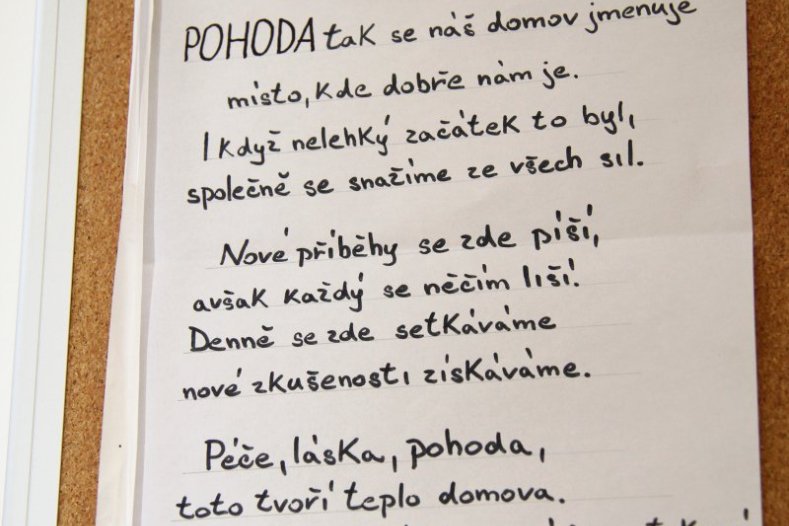 POHODA tak se náš domov jmenuje
místo, kde dobře nám je.
I když nelehký začátek to byl,
společně se snažíme ze všech sil.
Nové příběhy se zde píší,
avšak každý se něčím liší!
Denně se zde setkáváme
nové zkušenosti získáváme.
Péče, láska, pohoda,
toto tvoří teplo domova.